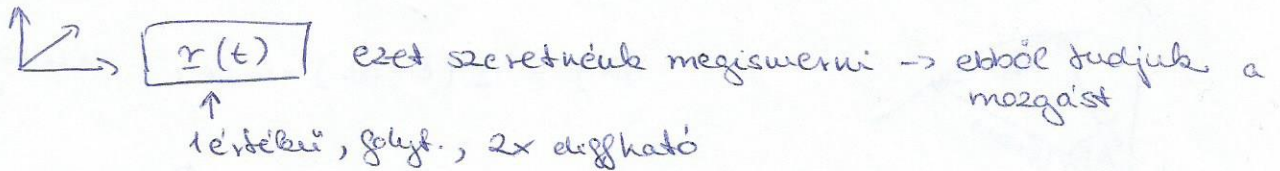 r(t) ezt szeretnénk megismerni -> ebből tudjuk a
mozgást
1 értékű, folyt., 2x diffható